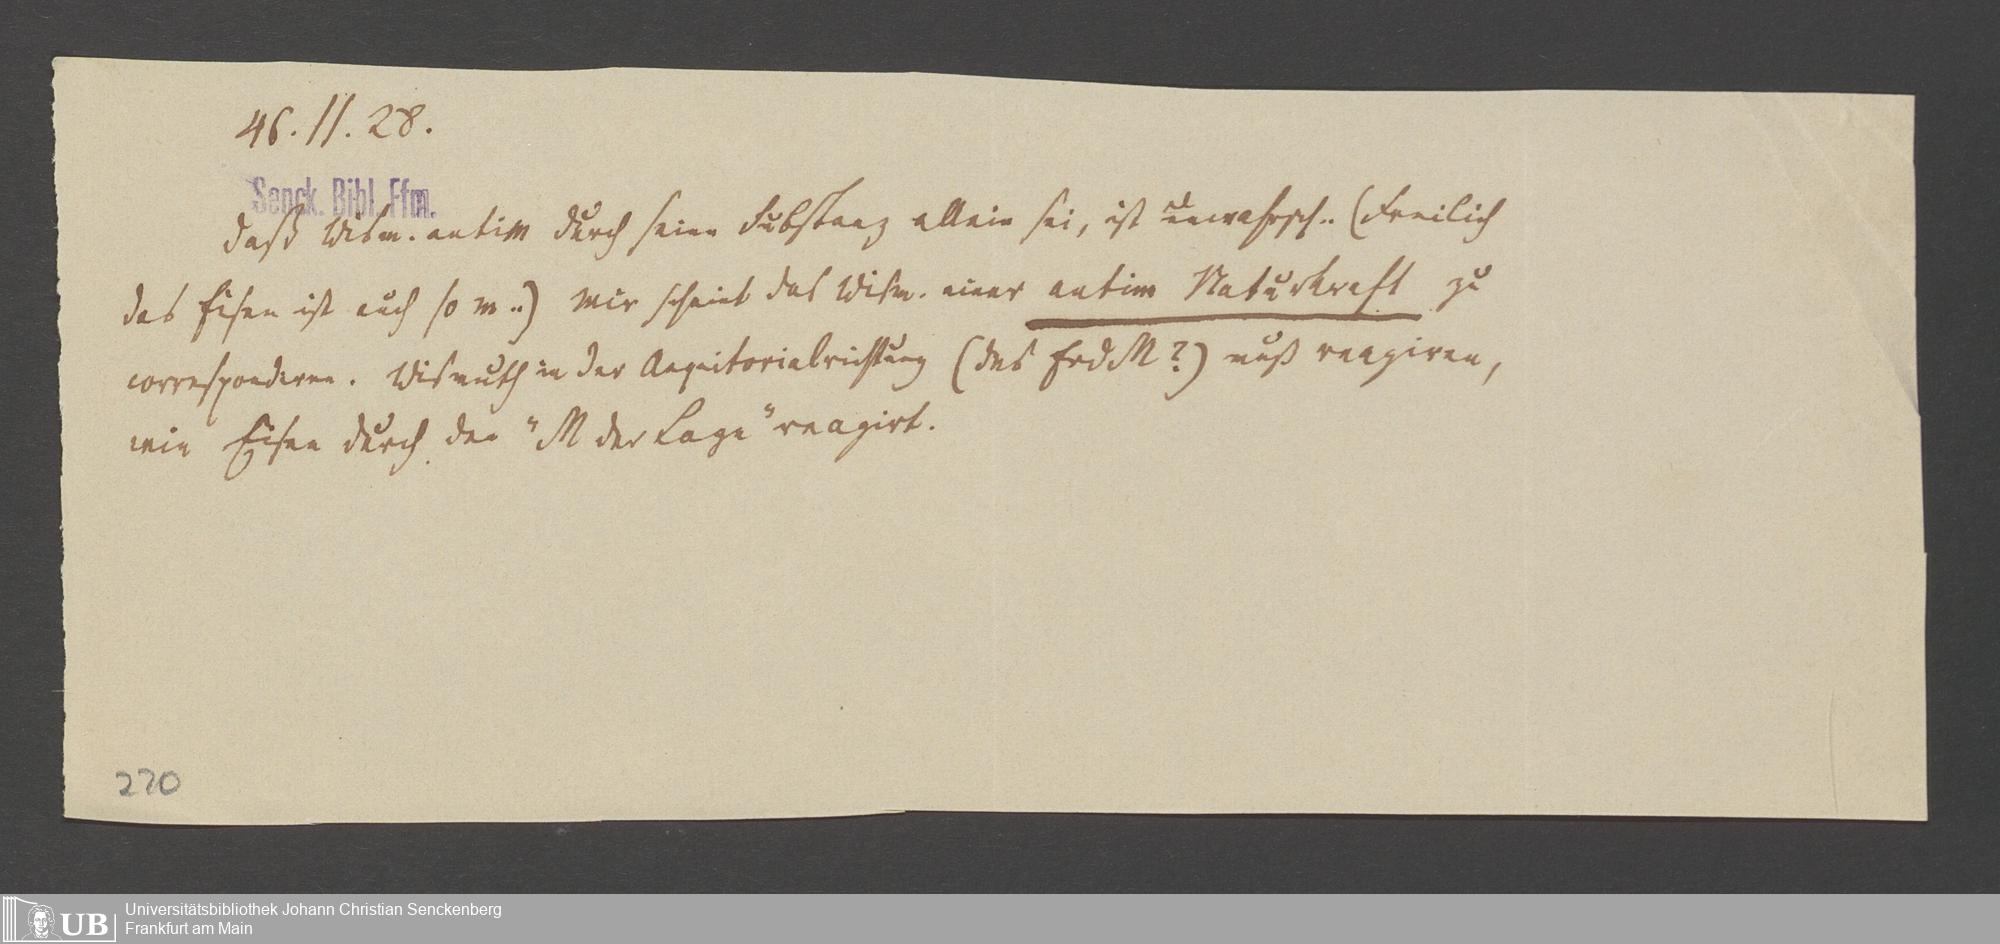 46. 11. 28.
Senck. Bibl. Ffm.
Daß Wism. antim durch seine Substanz allein sei, ist unwahrsch.. (Freilich
das Eisen ist auch so m..) Mir scheint das Wism. einer antim Naturkraft zu
correspondiren. Wismuth in der Aequitorialrichtung (des ErdM?) muß reagiren,
wie Eisen durch den "M der Lage" reagirt.
270
UB
Universitätsbibliothek Johann Christian Senckenberg
Frankfurt am Main